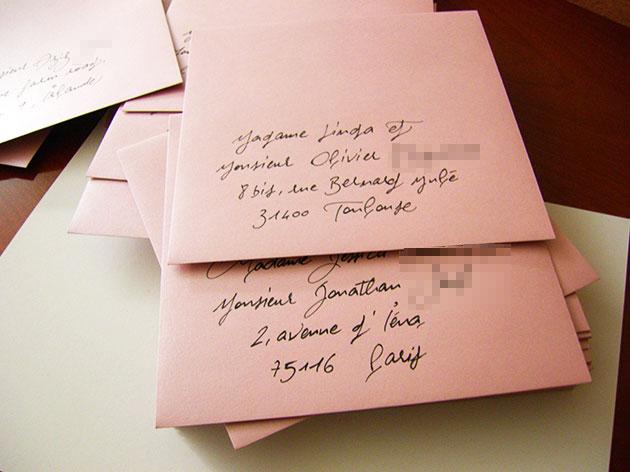 Madame Linda et
Monsieur Olivier
8 bis, rue Bernard Mulé
31400 Toulouse
Madame Jessica
Monsieur Jonathan
2, avenue d'Iéna
75116 Paris